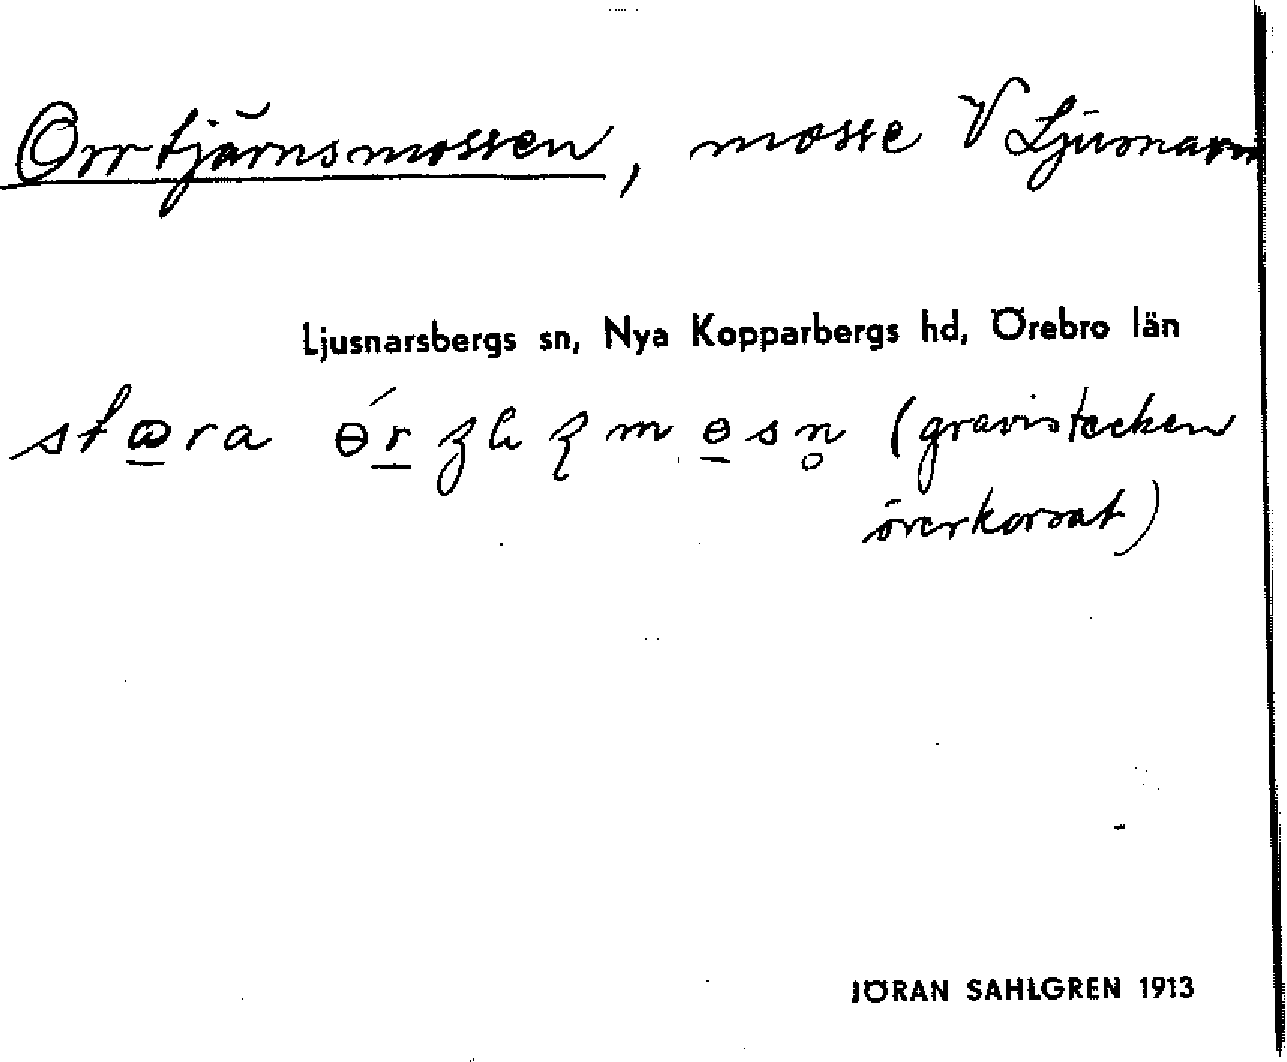 Orrtjärnsmossen, mosse V Ljusnaren
Ljusnarsbergs sn, Nya Kopparbergs hd, Örebro län
(gravistecken
överkorsat)
JÖRAN SAHLGREN 1913